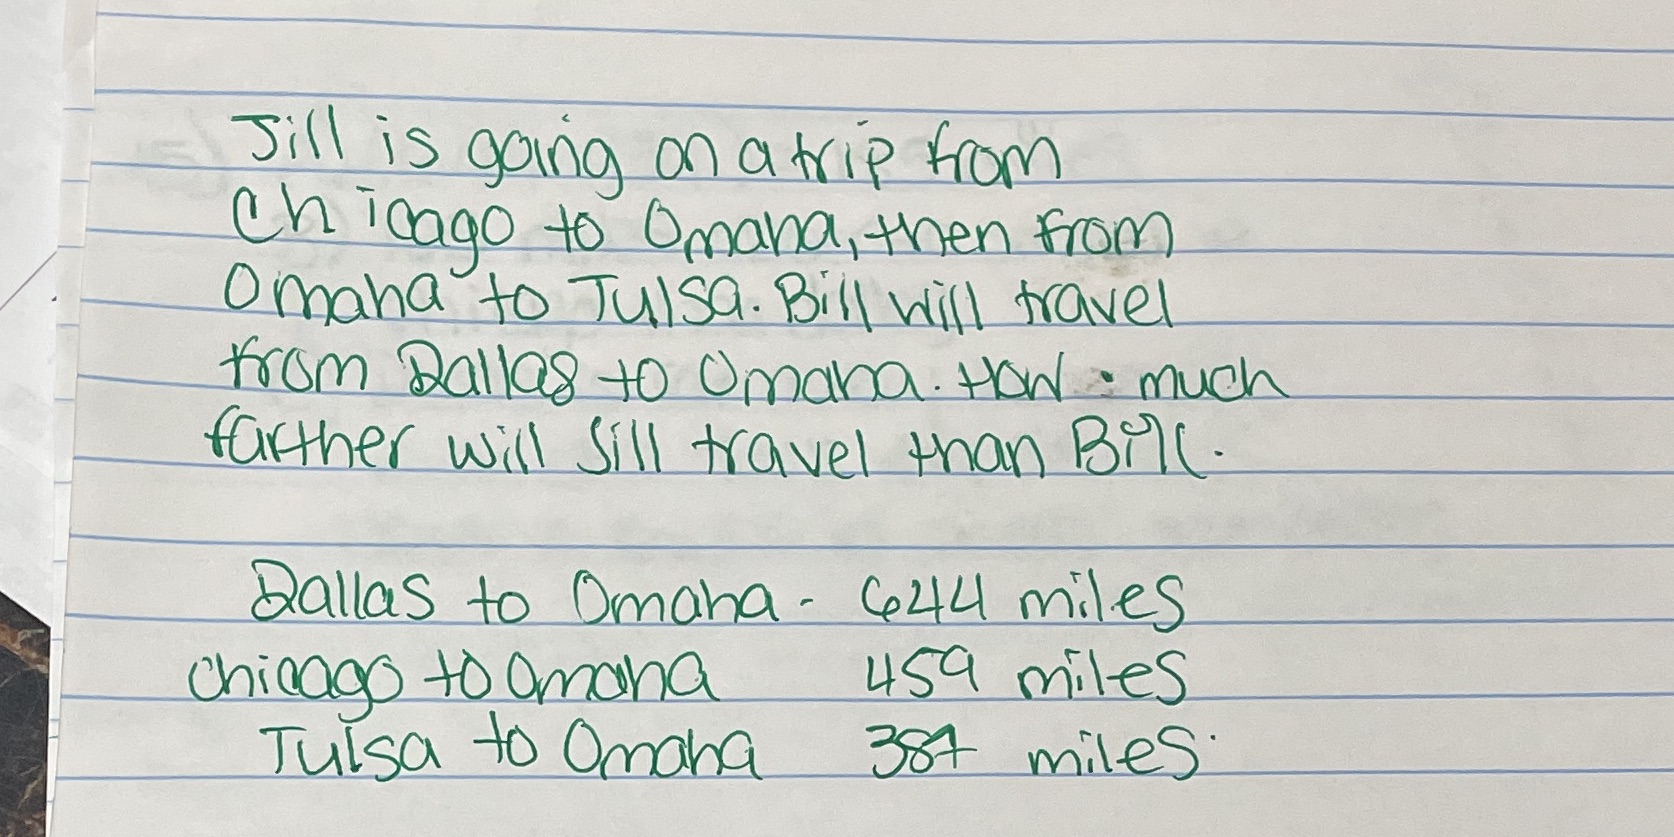 Jill is going on a trip from
Chicago to Omaha, then from
Omaha to Tulsa. Bill will travel
from Dallas to Omaha. How much
farther will Jill travel than Bill.
Dallas to Omaha - 644 miles
Chicago to Omaha 459 miles
Tulsa to Omaha 387 miles.